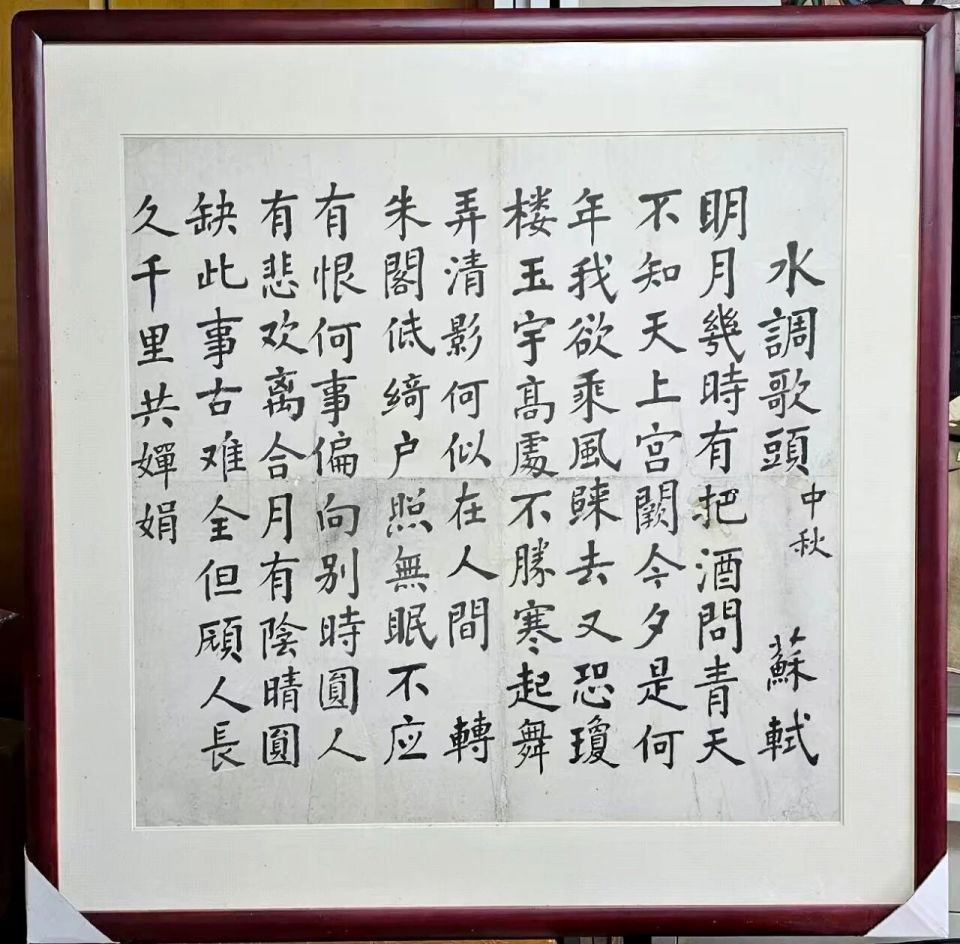 水調歌頭 中秋 蘇軾
明月幾時有把酒問青天
不知天上宫闕今夕是何
年我欲乘風歸去又恐瓊
楼玉宇高處不勝寒起舞
弄清影何似在人間 轉
朱閣低綺户照無眠不应
有恨何事偏向别時圓人
有悲欢离合月有陰晴圓
缺此事古难全但願人長
久千里共嬋娟